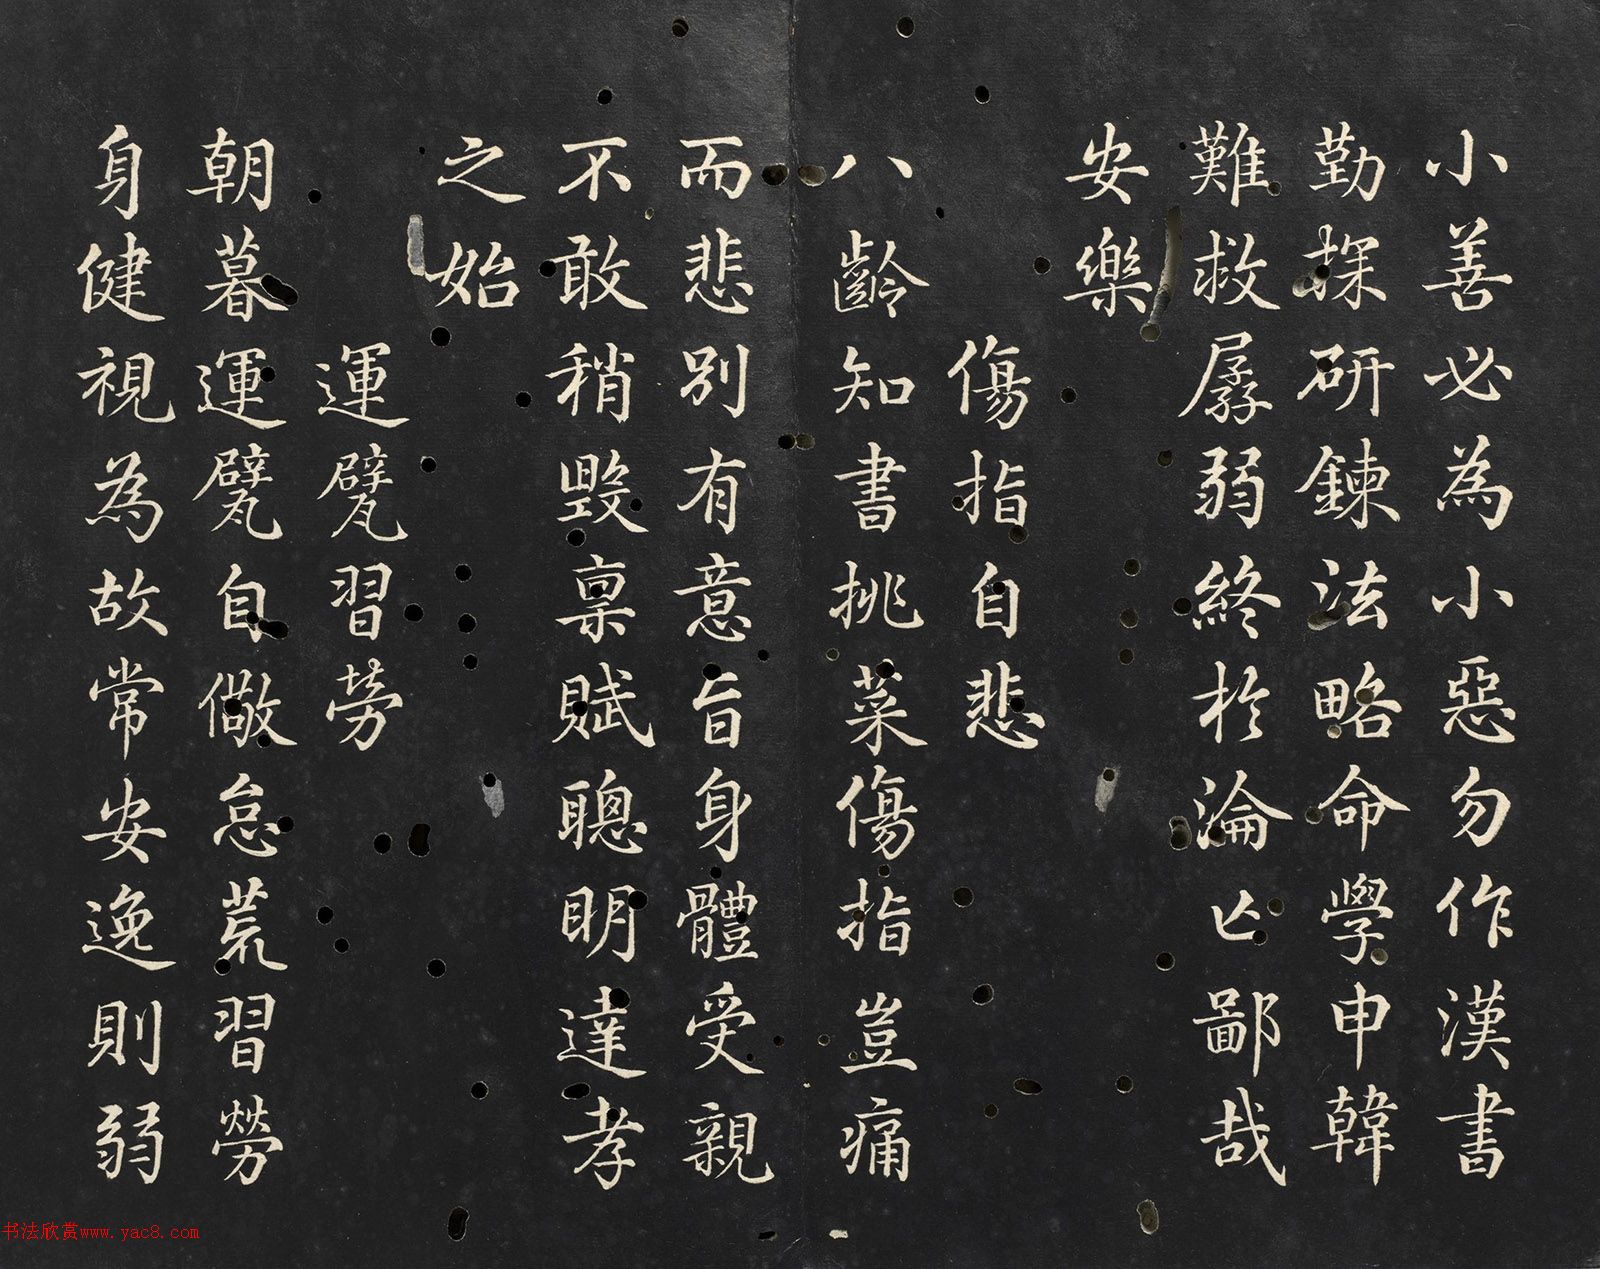 小善必為小惡勿作漢書
勤探研鍊法略命學申韓
難救孱弱終於淪亡鄙哉
安樂
傷指自悲
八齡知書挑菜傷指豈痛
而悲別有意旨身體受親
不敢稍毀稟賦聰明達孝
之始
運甓習勞
朝暮運甓自儆怠荒習勞
身健視為故常安逸則弱
书法欣赏www.yac8.com